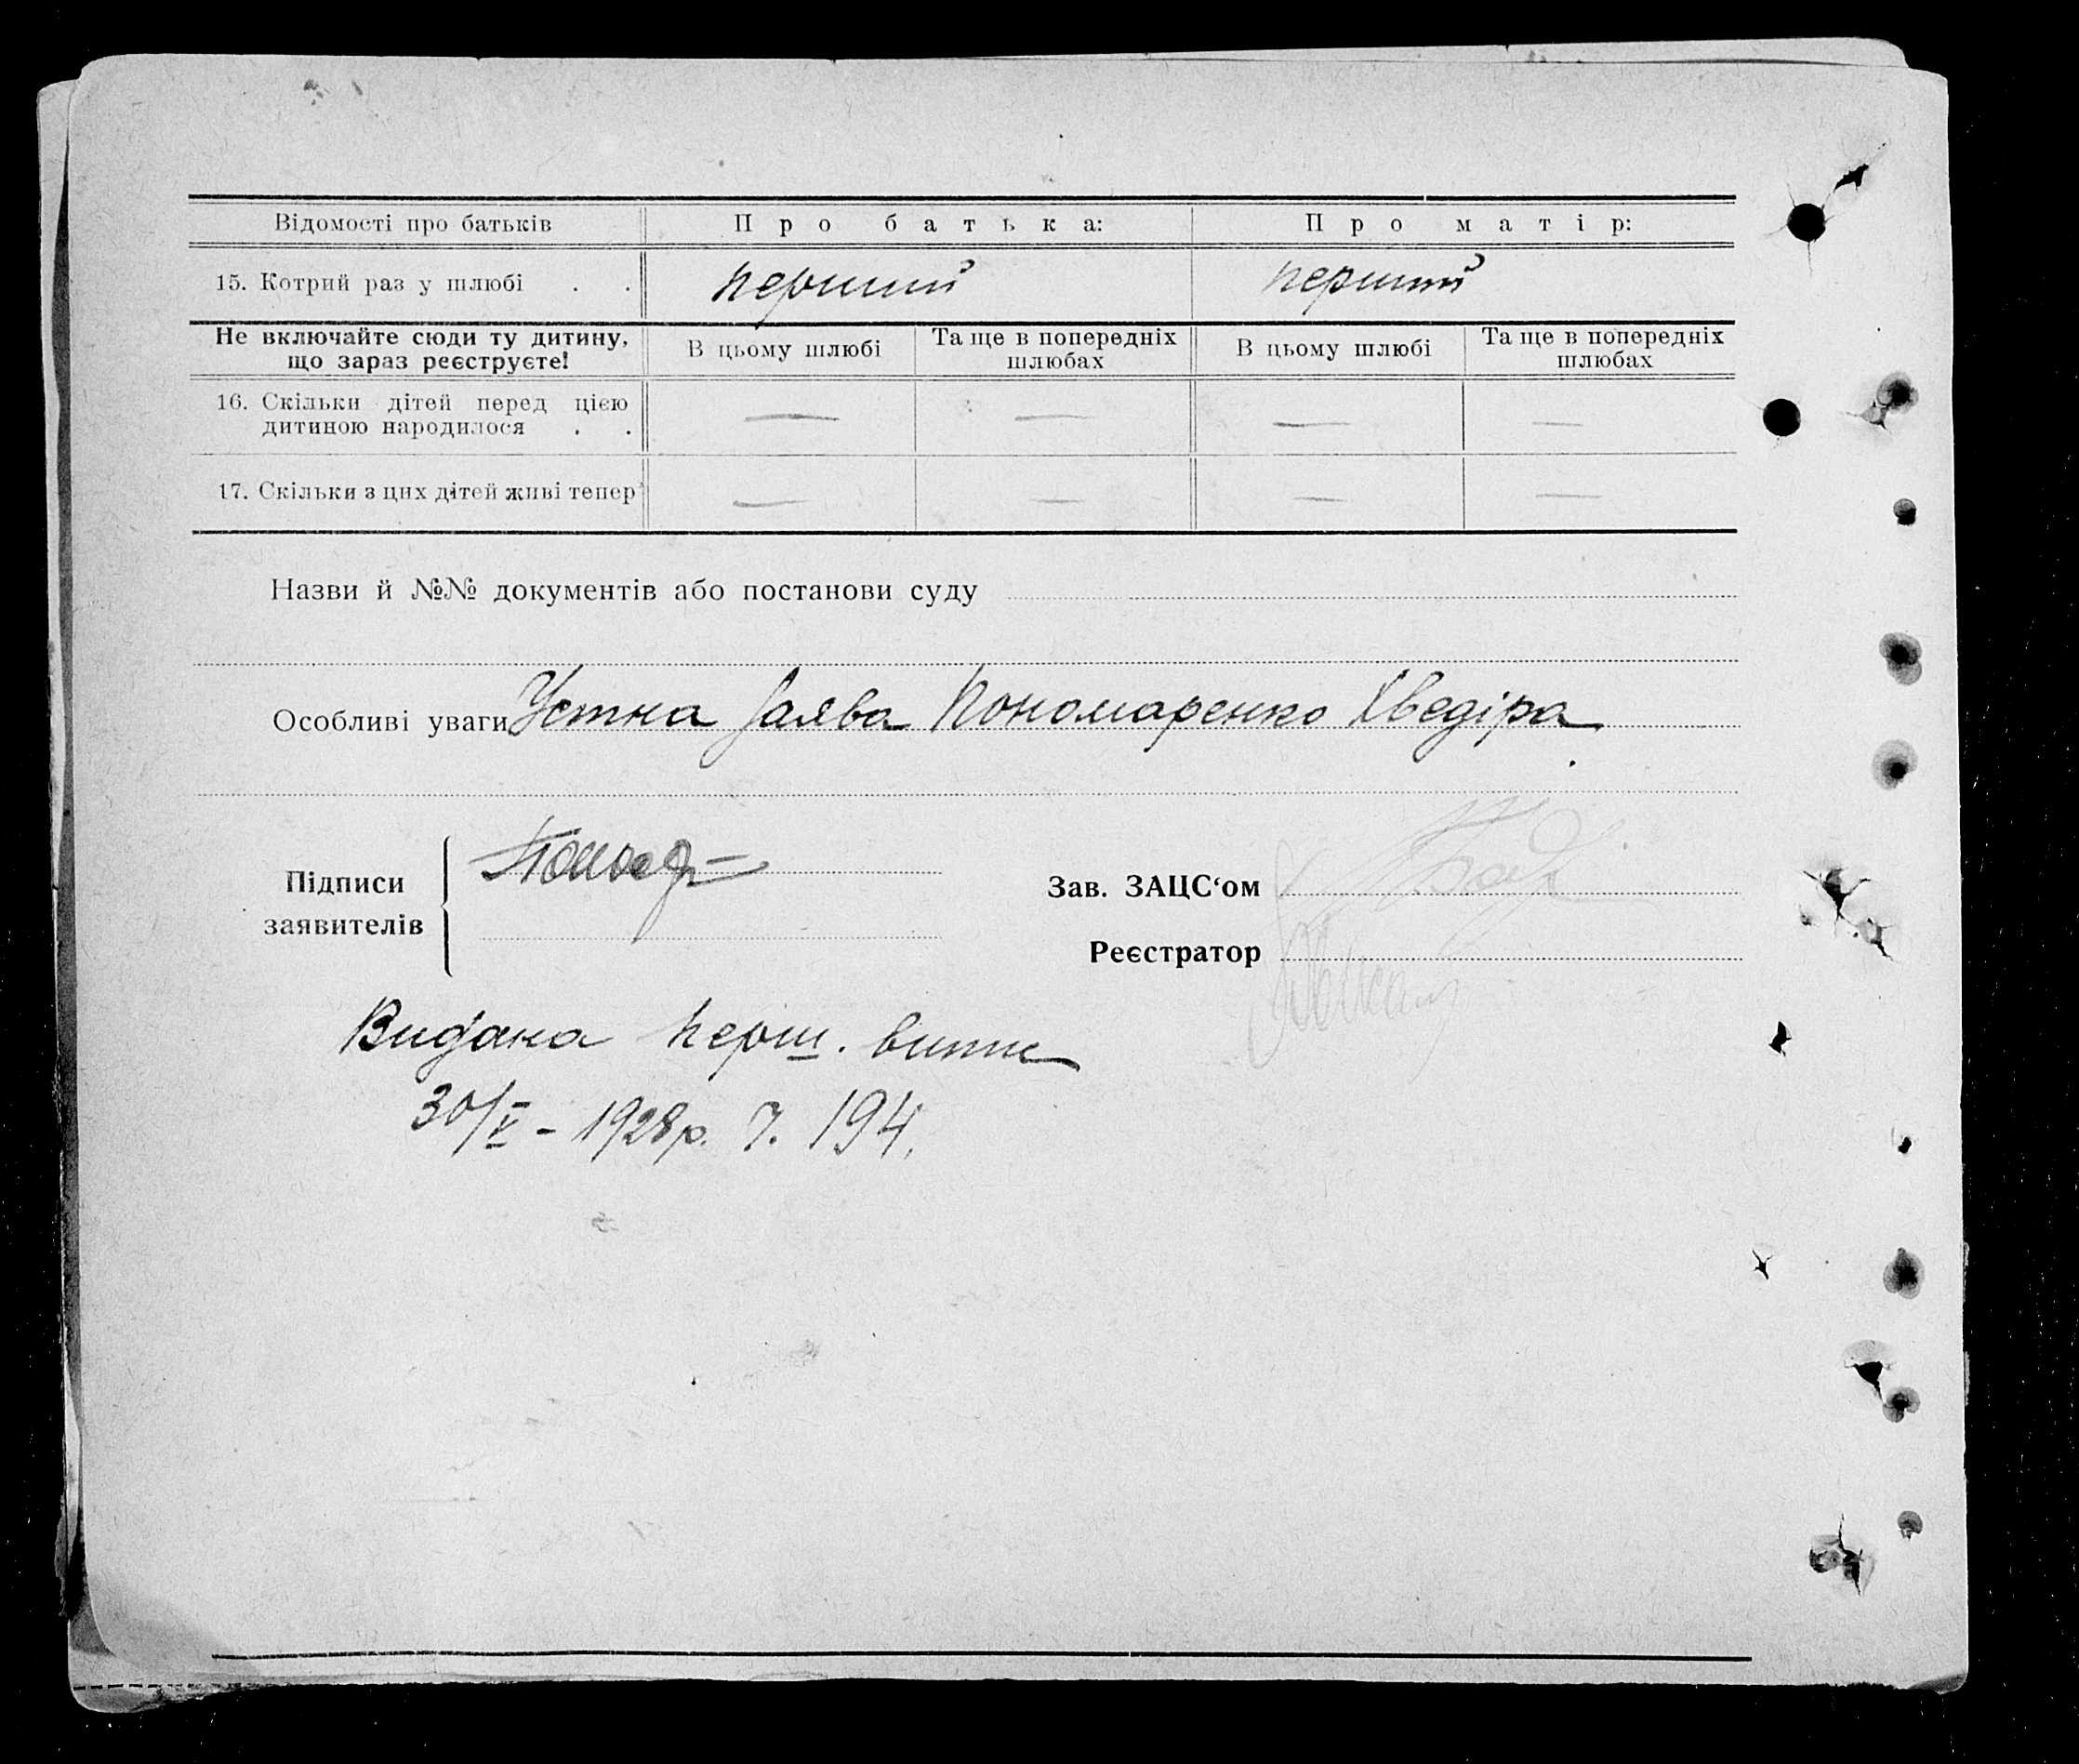 Відомості про батьків Про батька: Про матір:
15. Котрий раз у шлюбі . . перший перший
Не включайте сюди ту дитину, що зараз реєструєте! В цьому шлюбі Та ще в попередніх шлюбах В цьому шлюбі Та ще в попередніх шлюбах
16. Скільки дітей перед цією
дитиною народилося . . — — — —
17. Скільки з цих дітей живі тепер — — — —
Назви й №№ документів або постанови суду
Особливі уваги Устна заява Пономаренко Хведіра
Підписи
заявителів
Зав. ЗАЦС‘ом
Реєстратор
Видана перш. випис
30/V - 1928р. 194.